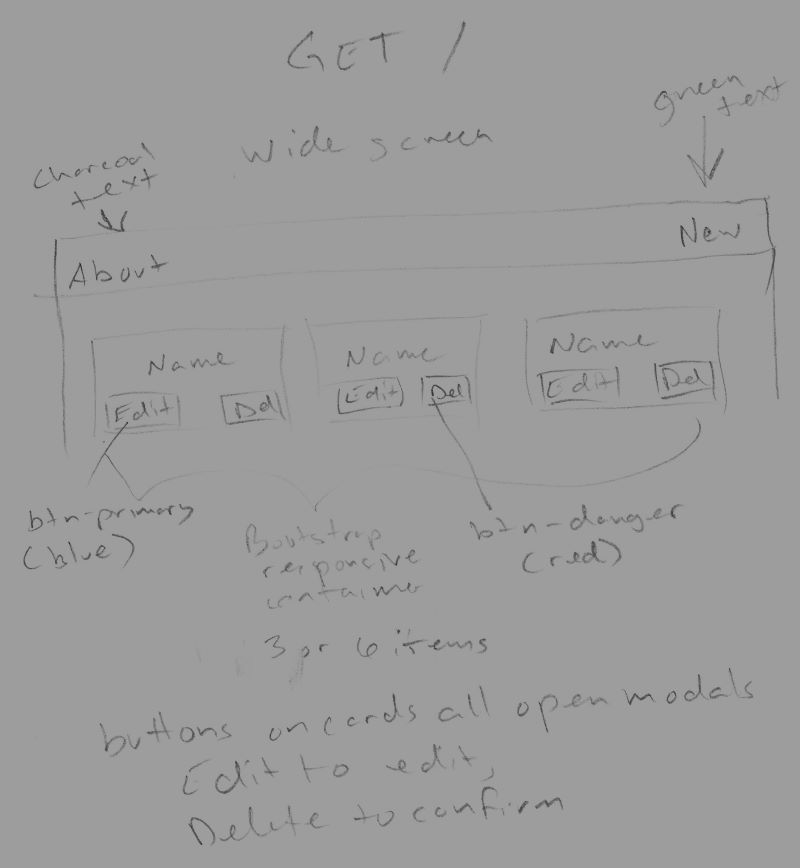 GET /
green
text
wide screen
charcoal
text
About
New
Name
Name
Name
Edit
Del
Edit
Del
Edit
Del
btn-primary
(blue)
Bootstrap
responsive
container
btn-danger
(red)
3 or 6 items
buttons on cards all open modals
Edit to edit,
Delete to confirm